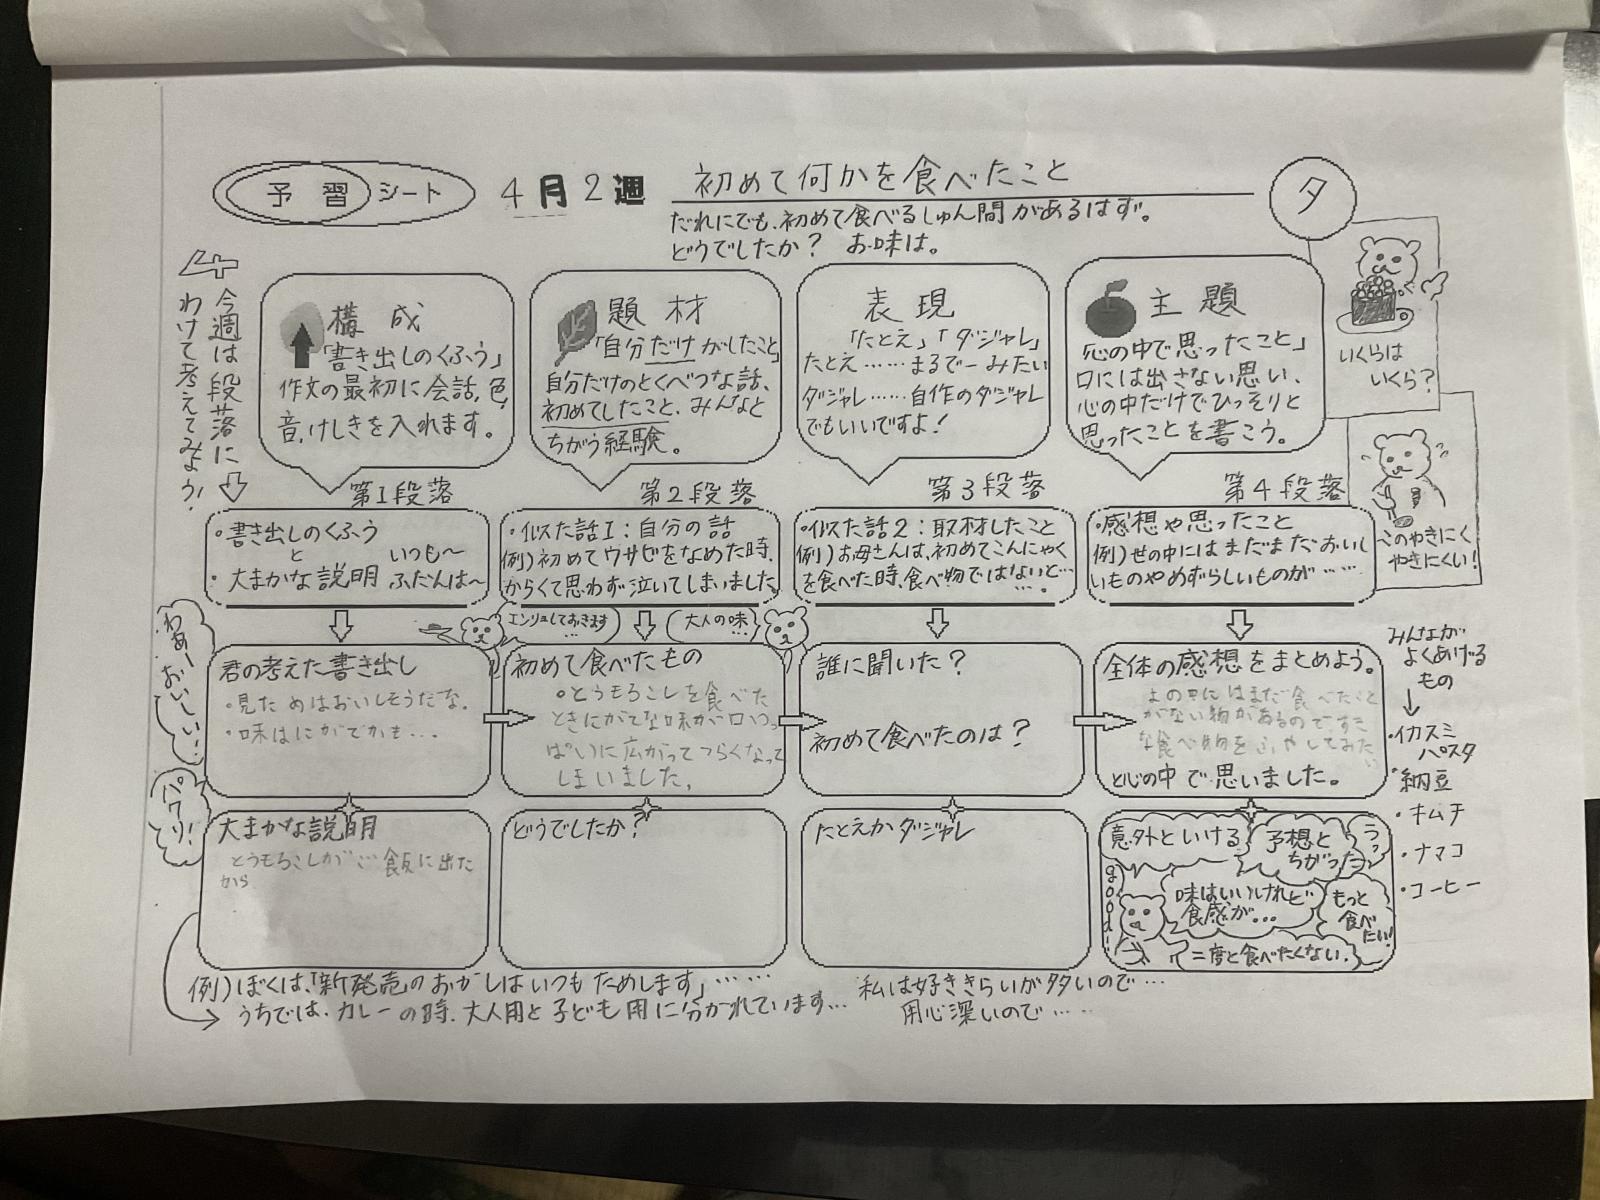 予習シート 4月2週 初めて何かを食べたこと
タ
だれにでも、初めて食べるしゅん間があるはず。
どうでしたか? お味は。
今週は段落に
わけて考えてみよう!
構成
「書き出しのくふう」
作文の最初に会話、色、
音、けしきを入れます。
題材
「自分だけがしたこと」
自分だけのとくべつな話、
初めてしたこと、みんなと
ちがう経験。
表現
「たとえ」「ダジャレ」
たとえ……まるでーみたい
ダジャレ……自作のダジャレ
でもいいですよ!
主題
「心の中で思ったこと」
口には出さない思い、
心の中だけでひっそりと
思ったことを書こう。
いくらは
いくら?
このやきにく
やきにくい!
第1段落
・書き出しのくふう
と
・大まかな説明
いつも〜
ふだんは〜
第2段落
・似た話1:自分の話
例)初めてワサビをなめた時、
からくて思わず泣いてしまいました。
第3段落
・似た話2:取材したこと
例)お母さんは、初めてこんにゃく
を食べた時、食べ物ではないと…
第4段落
・感想や思ったこと
例)世の中にはまだまだおいし
いものやめずらしいものが……
わぁーおいしい!
パクリ!
エンリョしておきます…
大人の味…
君の考えた書き出し
・見ためはおいしそうだな。
・味はにがでかも…。
初めて食べたもの
・とうもろこしを食べた
ときにがてな味が口いっ
ぱいに広がってつらくなって
しまいました。
誰に聞いた?
初めて食べたのは?
全体の感想をまとめよう。
よの中にはまだ食べたこと
がない物があるので、すき
な食べ物をふやしてみたい
と心の中で思いました。
みんなが
よくあげる
もの
・イカスミ
パスタ
・納豆
・キムチ
・ナマコ
・コーヒー
大まかな説明
とうもろこしがご飯に出た
から
どうでしたか?
たとえかダジャレ
意外といける
予想と
ちがった
うっ
good!!
味はいいけれど
食感が…
もっと
食べ
たい!
二度と食べたくない。
例)ぼくは、「新発売」のおかしはいつもためします」……
うちでは、カレーの時、大人用と子ども用に分かれています…
私は好ききらいが多いので…
用心深いので……